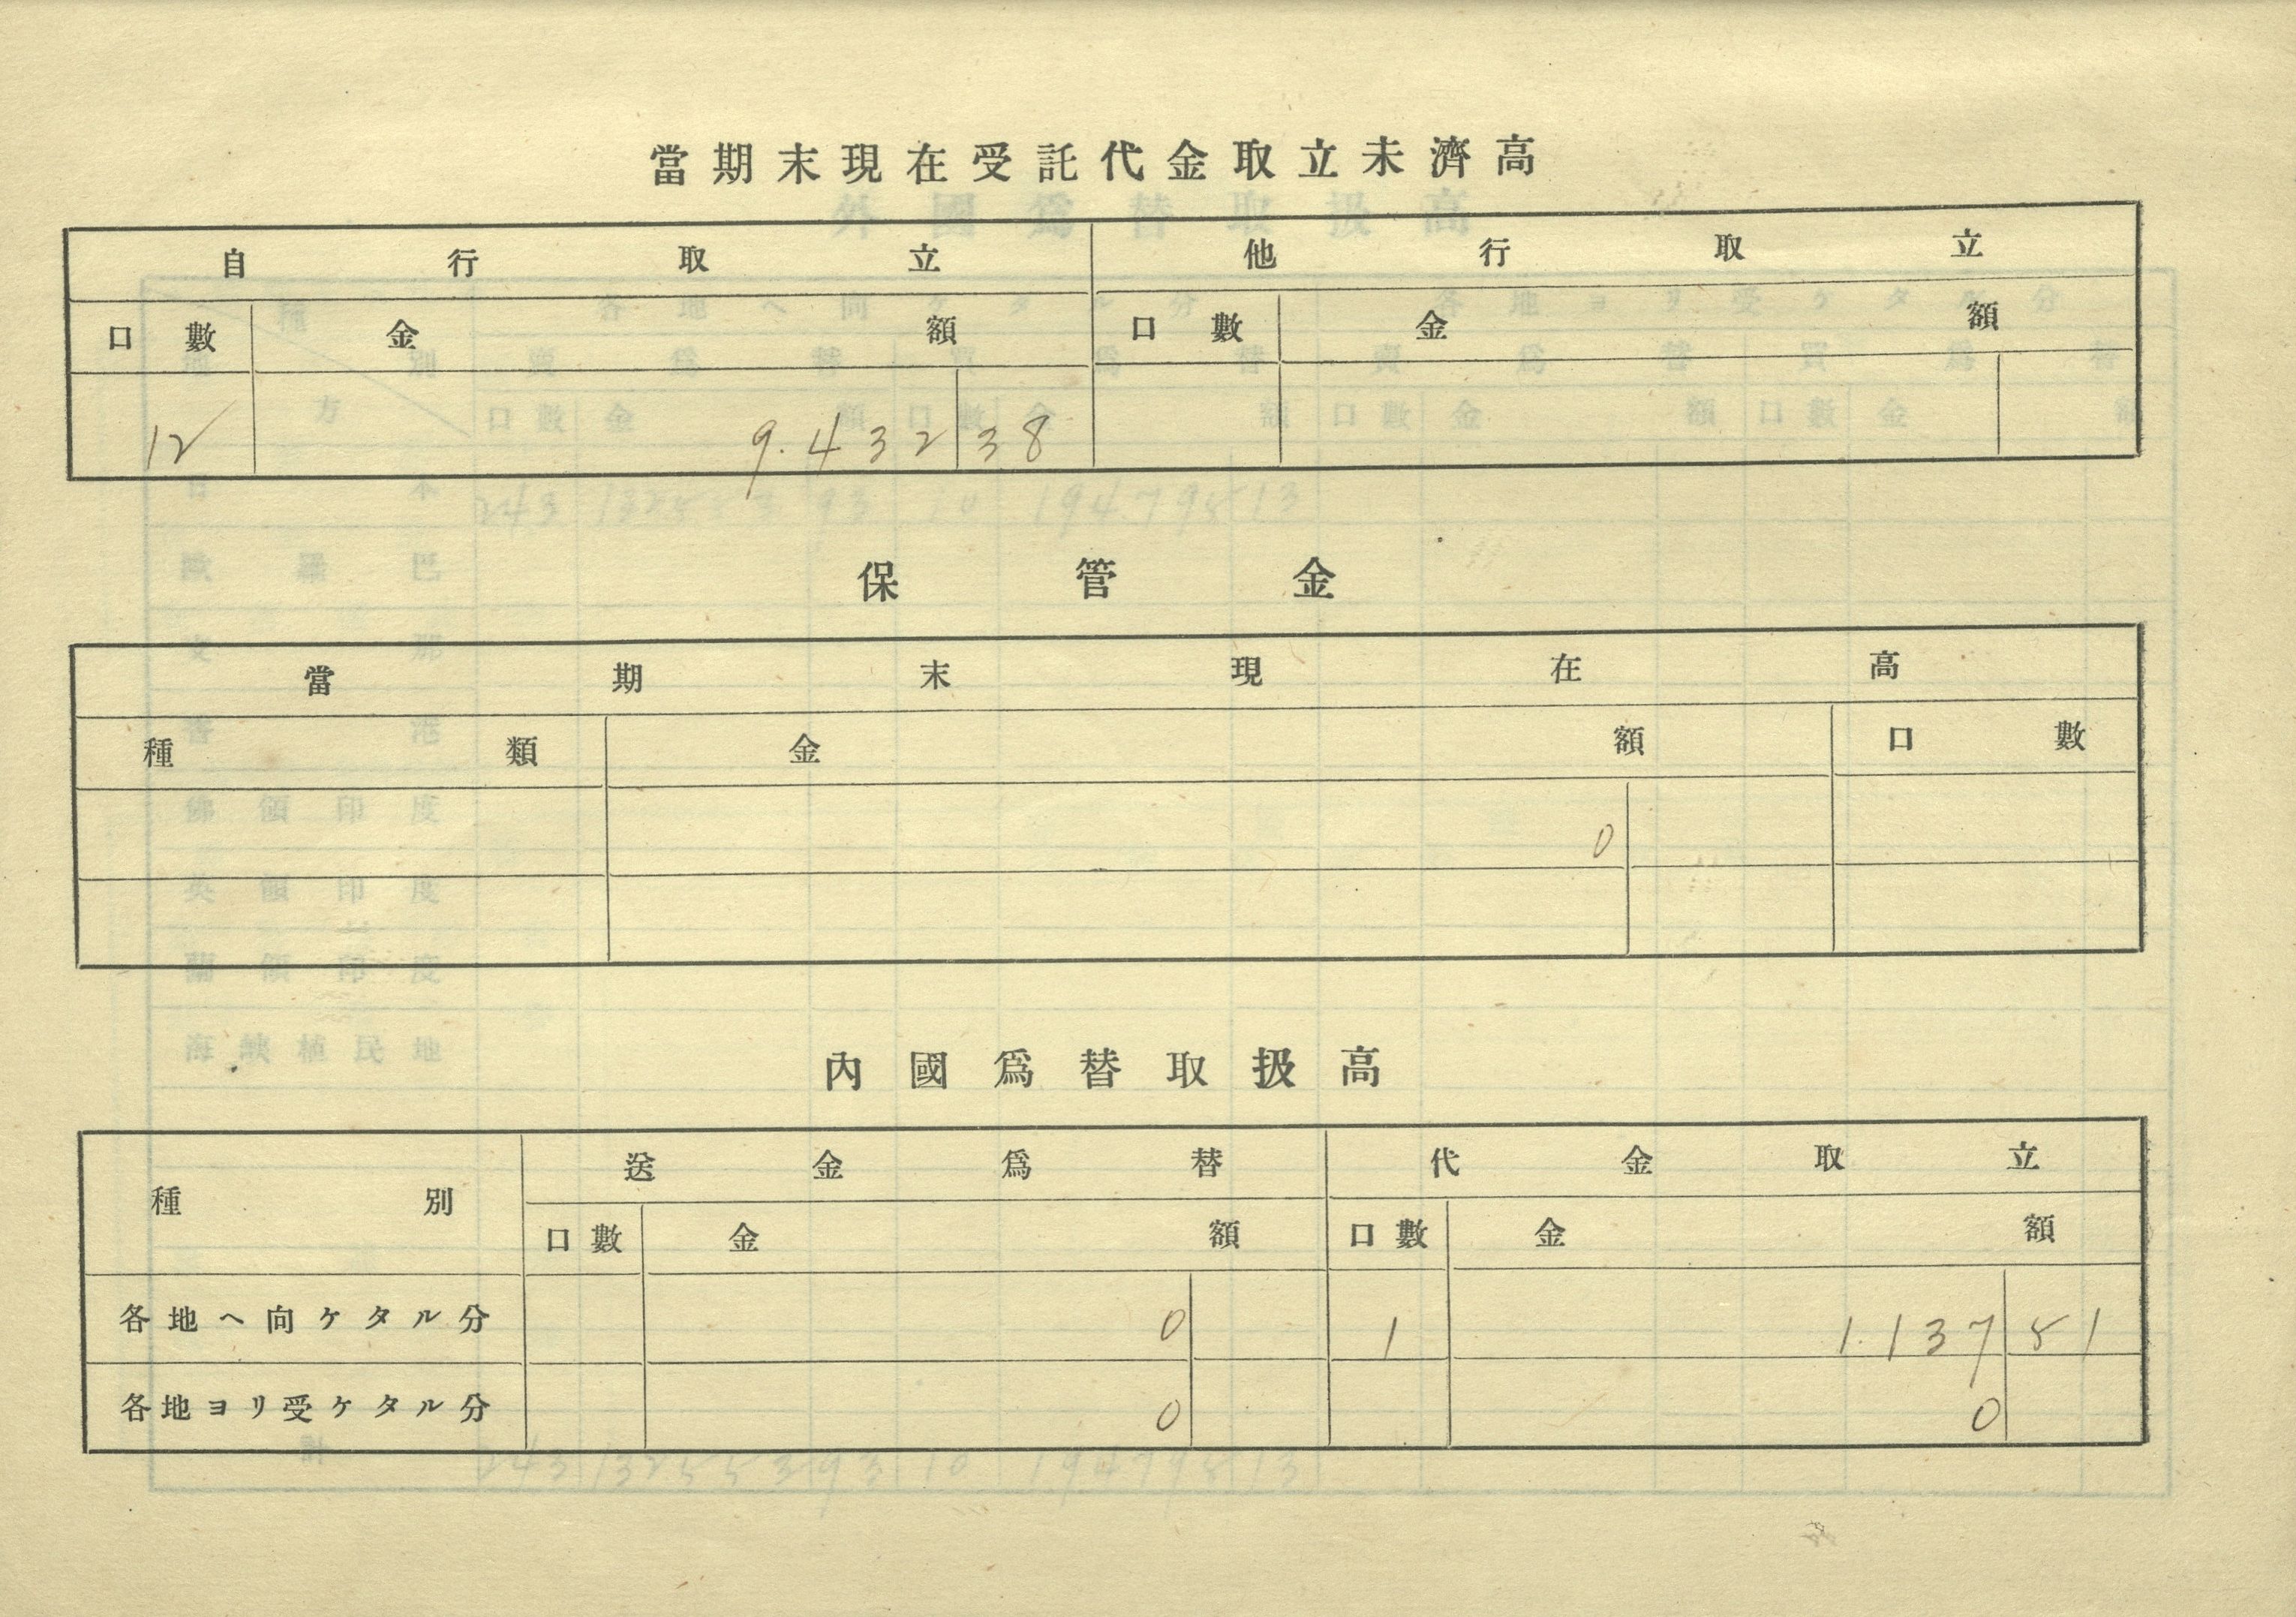 當期末現在受託代金取立未濟高
自行取立 他行取立
口數 金額 口數 金額
12 9.432 38
保管金
當期末現在高
種類 金額 口數
0
內國爲替取扱高
種別 送金爲替 代金取立
口數 金額 口數 金額
各地ヘ向ケタル分 0 1 1.137 51
各地ヨリ受ケタル分 0 0